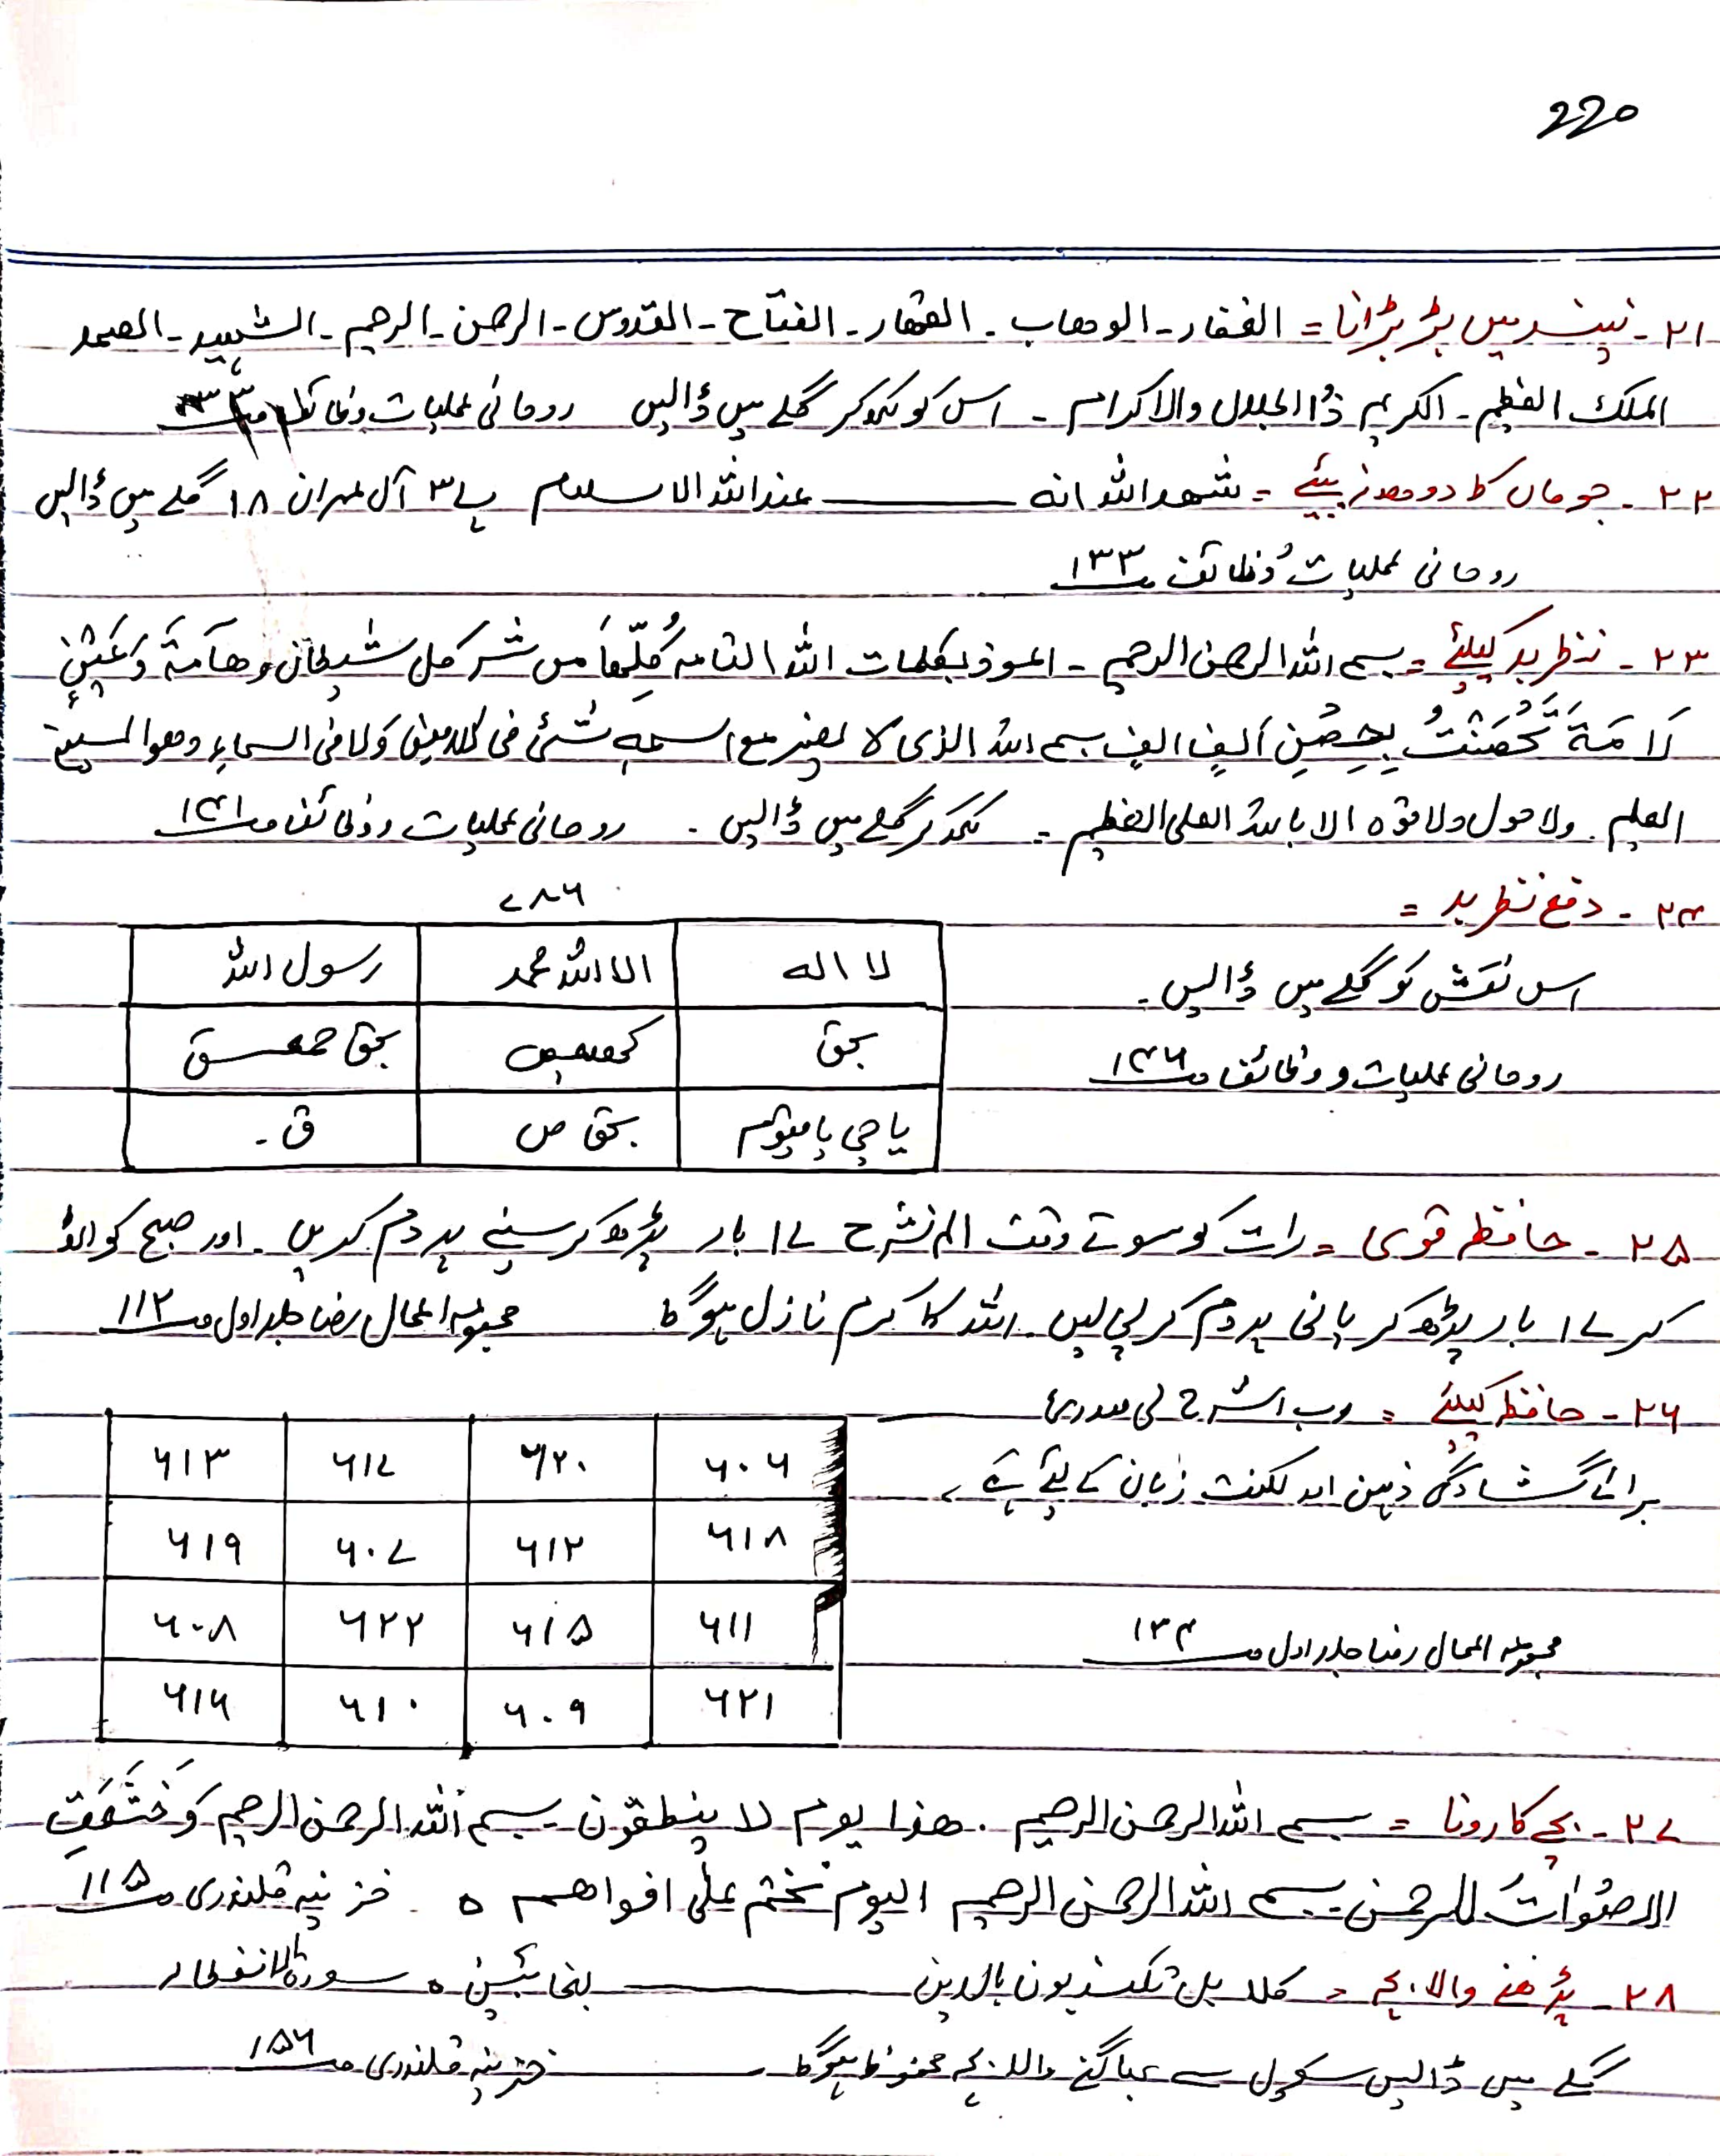 220
۲۱ - نیند میں بڑبڑانا = الغفار - الوھاب - القھار - الفتاح - القدوس - الرحمن - الرحیم - الشہید - الصمد
الملک العظیم - الکریم ذا الجلال والاکرام - اس کو لکھ کر گلے میں ڈالیں روحانی عملیات وظائف
۲۲ - جو ماں کا دودھ نہ پیئے = شھد اللہ انہ ——— عند اللہ الاسلام پ۳ آل عمران ۱۸ گلے میں ڈالیں
روحانی عملیات وظائف ص ۱۳۳
۲۳ - نظر بد کیلئے = بسم اللہ الرحمن الرحیم - اعوذ بکلمات اللہ التامہ کُلِّھَا من شر کل شیطان و ھآمۃ وَعَیْنٍ
لَامَۃٍ تَحَصَّنْتُ بِحِصْنِ اَلْفِ الفٍ بسم اللہ الذی لا یضر مع اسمہ شئی فی الارض وَلا فی السماء وھو السمیع
العلیم . ولا حول ولا قوۃ الا باللہ العلی العظیم - لکھ کر گلے میں ڈالیں - روحانی عملیات و وظائف ص ۱۴۱
۲۴ - دفع نظر بد =
۷۸۶
لا الہ | الا اللہ محمد | رسول اللہ
اس نقش کو گلے میں ڈالیں -
بحق | کھیعص | بحق حمعسق
روحانی عملیات و وظائف ص ۱۴۶
یا حی یا قیوم | بحق ص | ق -
۲۵ - حافظہ قوی = رات کو سوتے وقت الم نشرح ۱۷ بار پڑھ کر سینے پر دم کریں - اور صبح کو اٹھ
کر ۱۷ بار پڑھ کر پانی پر دم کر پی لیں . اللہ کا کرم نازل ہوگا مجموعہ اعمال رضا جلد اول ص ۱۱۲
۲۶ - حافظہ کیلئے = رب اشرح لی صدری
۶۰۶ | ۶۲۰ | ۶۱۷ | ۶۱۳
برائے کشادگی ذہن اور لکنت زبان کے لیے ہے
۶۱۸ | ۶۱۲ | ۶۰۷ | ۶۱۹
۶۱۱ | ۶۱۵ | ۶۲۲ | ۶۰۸
مجموعہ اعمال رضا جلد اول ص ۱۳۴
۶۲۱ | ۶۰۹ | ۶۱۰ | ۶۱۶
۲۷ - بچے کا رونا = بسم اللہ الرحمن الرحیم . ھذا یوم لا ینطقون بسم اللہ الرحمن الرحیم وَخَشَعَتِ
الاصْوَاتُ للرحمن بسم اللہ الرحمن الرحیم الیوم نختم علی افواھھم ہ خزینہ قلندری ص ۱۱۵
۲۸ - پڑھنے والا بچہ = کلا بل تکذبون بالدین ——— بغائبین ہ سورۃ الانفطار
گلے میں ڈالیں سکول سے بھاگنے والا بچہ محفوظ ہوگا ——— خزینہ قلندری ص ۱۵۶